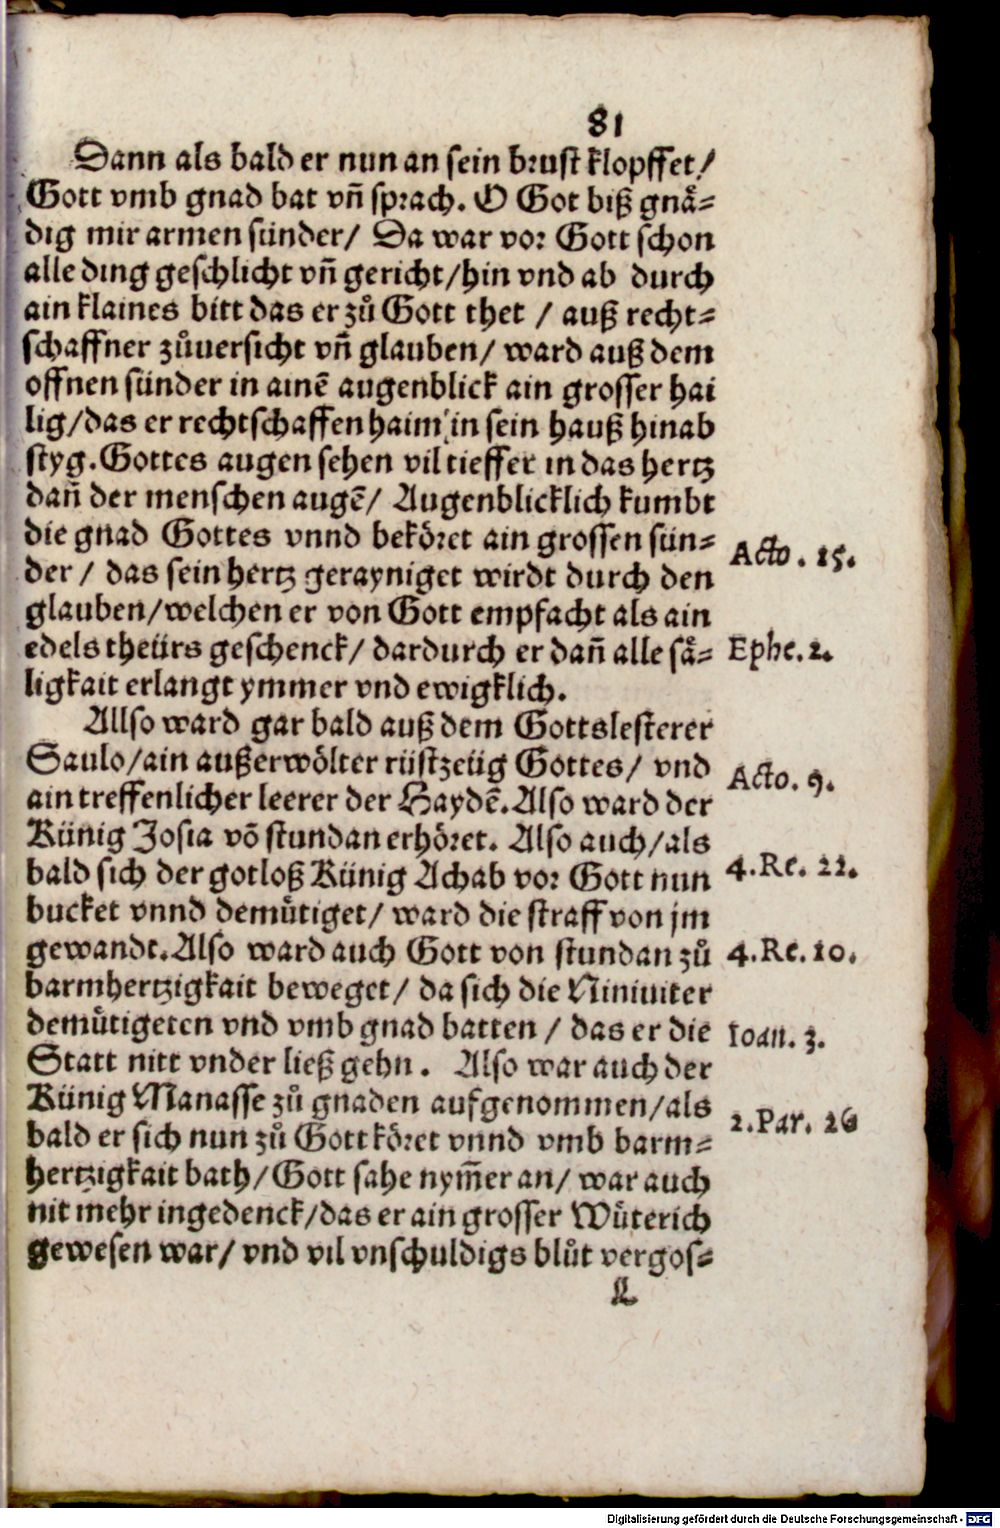 81
Dann als bald er nun an sein brust klopffet/
Gott vmb gnad bat vñ sprach. O Got biß gnaͤ-
dig mir armen sünder/ Da war vor Gott schon
alle ding geschlicht vñ gericht/hin vnd ab durch
ain klaines bitt das er zů Gott thet / auß recht-
schaffner zůuersicht vñ glauben/ ward auß dem
offnen sünder in ainē augenblick ain grosser hai
lig/das er rechtschaffen haim in sein hauß hinab
styg. Gottes augen sehen vil tieffer in das hertz
dañ der menschen augē/ Augenblicklich kumbt
die gnad Gottes vnnd bekoͤret ain grossen sün-
Acto. 15.
der / das sein hertz gerayniget wirdt durch den
glauben/welchen er von Gott empfacht als ain
edels theürs geschenck/ dardurch er dañ alle saͤ-
Ephe. 2.
ligkait erlangt ymmer vnd ewigklich.
Allso ward gar bald auß dem Gottslesterer
Saulo/ain außerwoͤlter rüstzeüg Gottes/ vnd
Acto. 9.
ain treffenlicher leerer der Haydē. Also ward der
Künig Josia vō stundan erhoͤret. Also auch/als
bald sich der gotloß Künig Achab vor Gott nun
4. Re. 22.
bucket vnnd demuͤtiget/ ward die straff von jm
gewandt. Also ward auch Gott von stundan zů
4. Re. 10.
barmhertzigkait beweget/ da sich die Niniuiter
demuͤtigeten vnd vmb gnad batten / das er die
Ioan. 3.
Statt nitt vnder ließ gehn. Also war auch der
Künig Manasse zů gnaden aufgenommen/als
2. Par. 26
bald er sich nun zů Gott koͤret vnnd vmb barm-
hertzigkait bath/Gott sahe nym̄er an/ war auch
nit mehr ingedenck/das er ain grosser Wuͤterich
gewesen war/ vnd vil vnschuldigs blůt vergos-
L
Digitalisierung gefördert durch die Deutsche Forschungsgemeinschaft - DFG